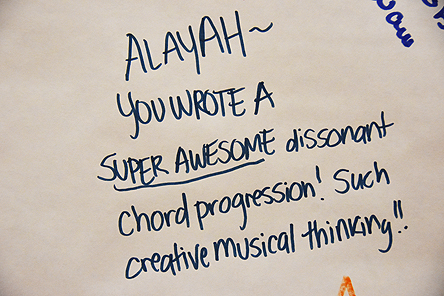 ALAYAH~
YOU WROTE A
SUPER AWESOME dissonant
chord progression! Such
creative musical thinking!!